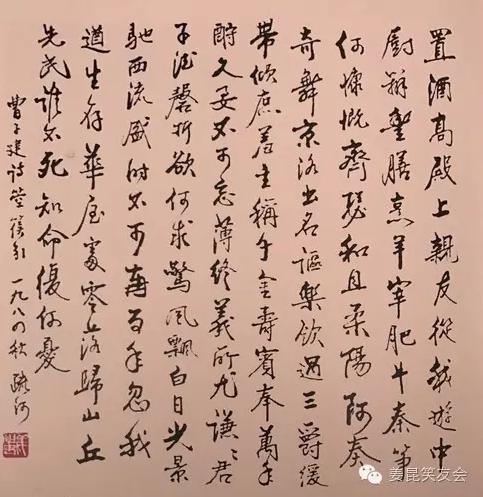 置酒高殿上親友從我遊中
廚辦豐膳烹羊宰肥牛秦箏
何慷慨齊瑟和且柔陽阿奏
奇舞京洛出名謳樂飲過三爵緩
帶傾庶羞主稱千金壽賓奉萬年
酬久要不可忘薄終義所尤謙〻君
子德磬折欲何求驚風飄白日光景
馳西流盛時不可再百年忽我
遒生存華屋處零落歸山丘
先民誰不死知命復何憂
曹子建詩箜篌引 一九八四秋
姜昆笑友会